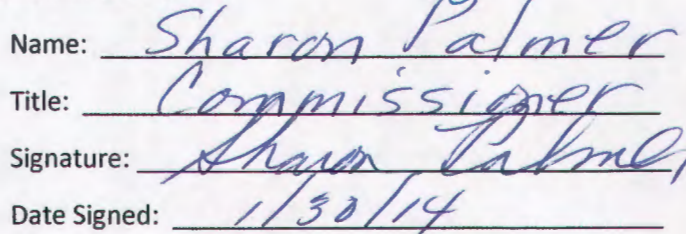 Name: Sharon Palmer
Title: Commissioner
Signature: Sharon Palmer
Date Signed: 1/30/14